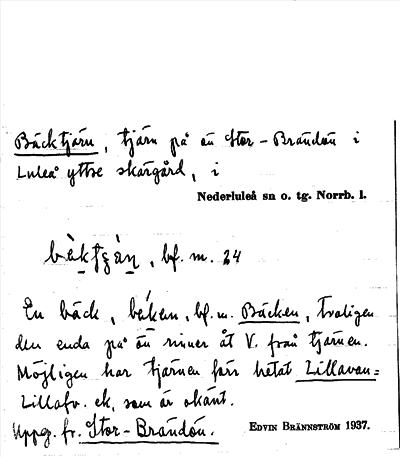 Bäcktjärn, tjärn på ön Stor-Brändön i
Luleå yttre skärgård, i
Nederluleå sn o. tg. Norrb. l.
bf. m. 24
En bäck, bf. m. Bäcken, troligen
den enda på ön rinner åt V. från tjärnen.
Möjligen har tjärnen förr hetat Lillavan=
Lillafv. ek, som är okänt.
Uppg. fr. Stor-Brändön.
EDVIN BRÄNNSTRÖM 1937.